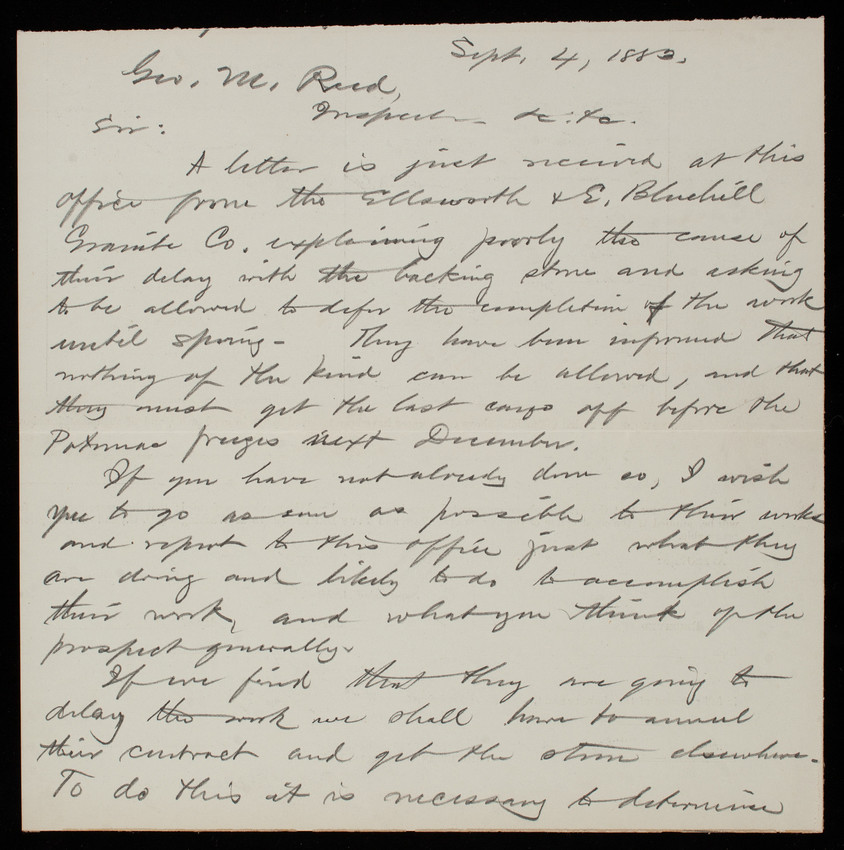 Sept. 4, 1883.
Geo. M. Reed,
Inspector &c. &c.
Sir:
A letter is just received at this
office from the Ellsworth & E. Bluehill
Granite Co. explaining poorly the cause of
their delay with the backing stone and asking
to be allowed to defer the completion of the work
until spring - They have been informed that
nothing of the kind can be allowed, and that
they must get the last cargo off before the
Potomac freezes next December.
If you have not already done so, I wish
you to go as soon as possible to their works
and report to this office just what they
are doing and likely to do to accomplish
their work, and what you think of the
prospect generally.
If we find that they are going to
delay the work we shall have to annul
their contract and get the stone elsewhere.
To do this it is necessary to determine